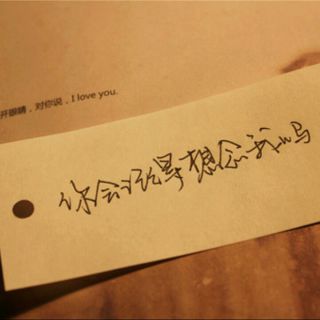 开眼睛，对你说，I love you.
你会想念我吗